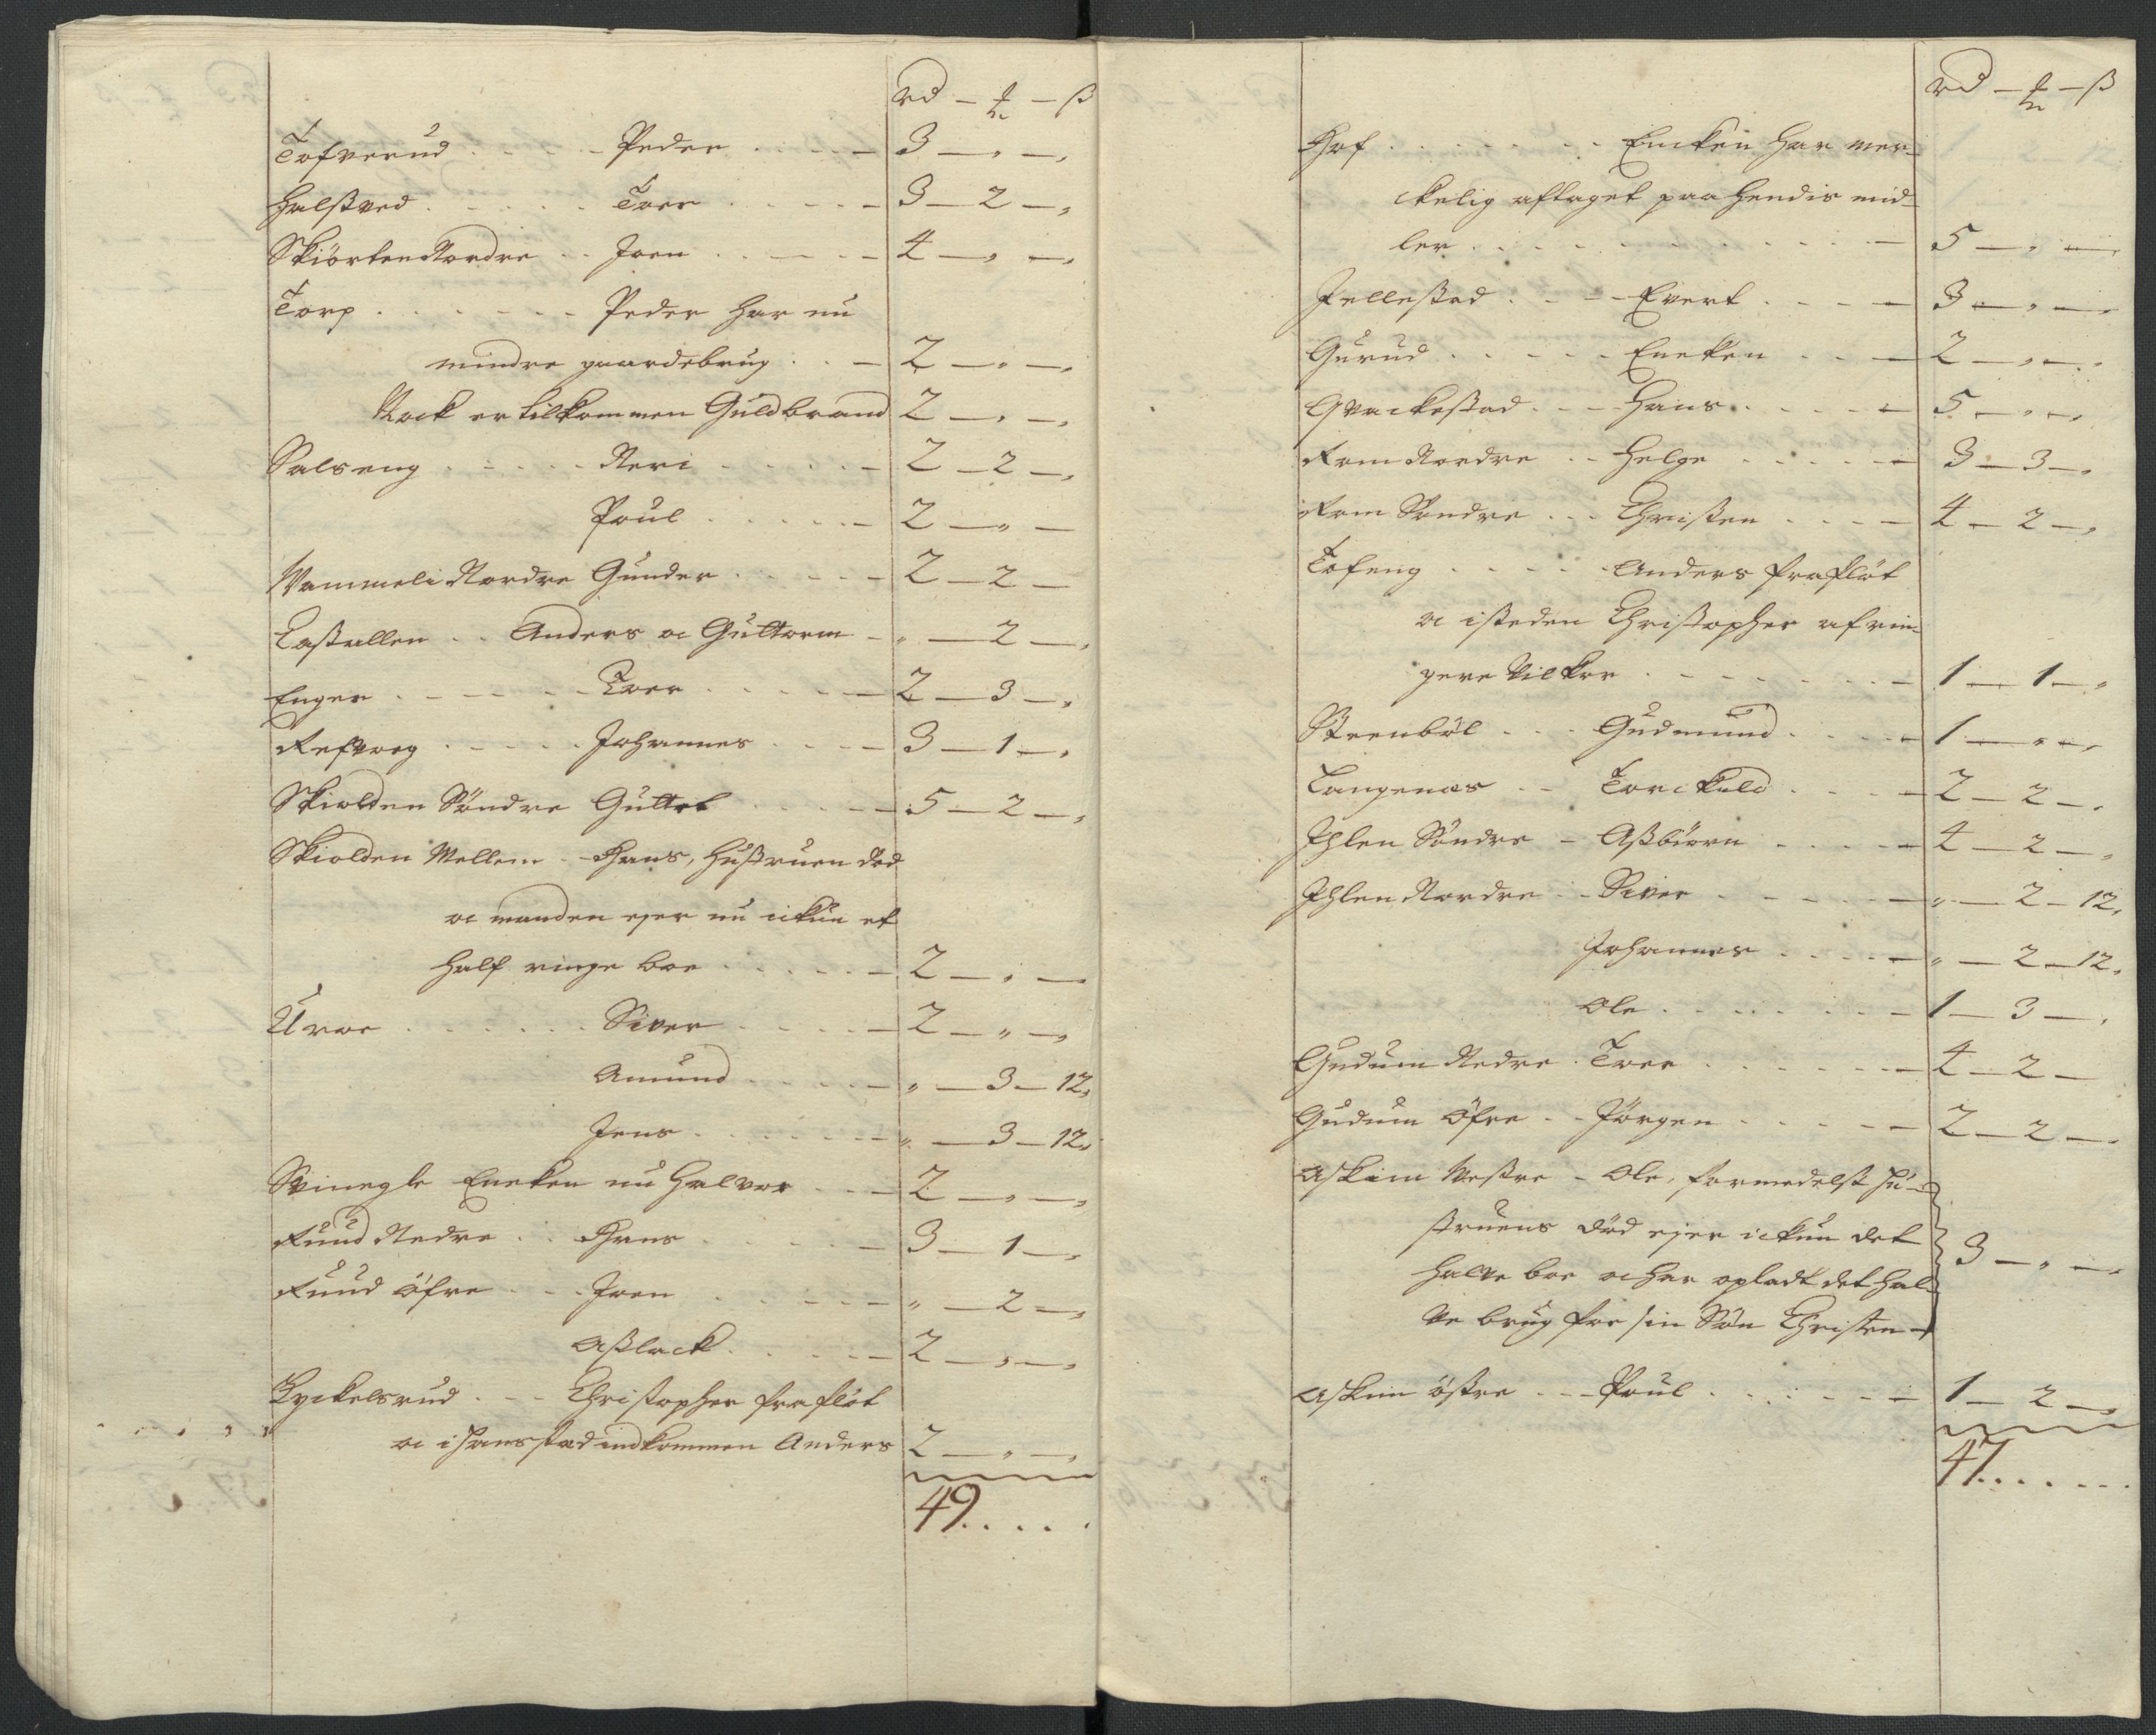 rd – ʒ – ß
Tofverud . . . . Peder . . . . 3 – „ – „
Halßved . . . . . Toer . . . . . 3 – 2 – „
Skiörten Nordre . . Joen . . . . 4 – „ – „
Torp . . . . . . . Peder har nu
mindre gaardebrug . . . 2 – „ – „
Nock er tilkommen Guldbrand 2 – „ – „
Salseng . . . . . Neri . . . . . 2 – 2 – „
Poul . . . . . 2 – „ –
Wammeli Nordre Gunder . . . . . 2 – 2 –
Anders oc Guttorm – „ – 2 – „
Enger . . . . . . Toer . . . . . 2 – 3 – „
Refvoeg . . . . . Johannes . . . . 3 – 1 – „
Skiolden Söndre Guttol . . . . 5 – 2 – „
Skiolden Mellem . . Hans, Hußtruen död
oc manden ejer nu ickun et
half ringe boe . . . . . 2 – „ –
Uroe . . . . . . . Siver . . . . 2 – „ – „
Amund . . . . . „ – 3 – 12„
Jens . . . . . . . „ – 3 – 12„
Svinegle Encken nu Halvor . . . 2 – „ – „
Ruud Nedre . . Hans . . . . . 3 – 1 – „
Ruud öfre . . . Joen . . . . . „ – 2 – „
Aßlack . . . . . 2 – „ – „
Kyckelsrud . . . Christopher fraflöt
oc i hans stad indkommen Anders 2 – „ – „
49. . . . .
rd – ʒ – ß
Hof . . . . . . . . Encken har mer-
ckelig aftaget paa hendis mid-
ler . . . . . . . . . . 5 – „ –
Jelleßtad . . . . Evert . . . . 3 – „ –
Gurud . . . . . . Encken . . . 2 – „ – „
Qvackeßtad . . . Hans . . . . . 5 – „ – „
Rom Nordre . . Helge . . . . . 3 – 3 – „
Rom Söndre . . . Christen . . . . 4 – 2 – „
Tofeng . . . . . Anders fraflöt
oc isteden Christopher af rin-
gere Vilkor . . . . . . . 1 – 1 – „
Steenböl . . . Gudmund . . . . 1 – „ – „
Langenæs . . Torckild . . . . 2 – 2 – „
Ihlen Söndre – Aßbiörn . . . . . 4 – 2 – „
Ihlen Nordre . . Siver . . . . . . „ – 2 – 12„
Johannes . . . . . „ – 2 – 12„
Ole . . . . . . . . 1 – 3 – „
Gudum Nedre . Toer . . . . . . . 4 – 2 –
Gudum öfre . . Jörgen . . . . . 2 – 2 – „
Askim Vestre – Ole, formedelst hu-
struens död ejer ickun det
halve boe oc har opladt det hal-
ve brug for sin Sön Christen 3 – „ – „
Askim östre . . . Poul . . . . . . 1 – 2 – „
47. . . . . .